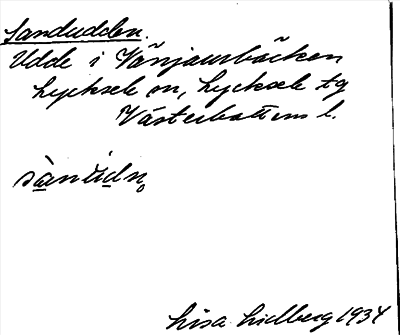 Sandudden.
Udde i Vänjaurbäcken
Lycksele sn, Lycksele tg
Västerbottens l.
Lisa Lidberg 1934